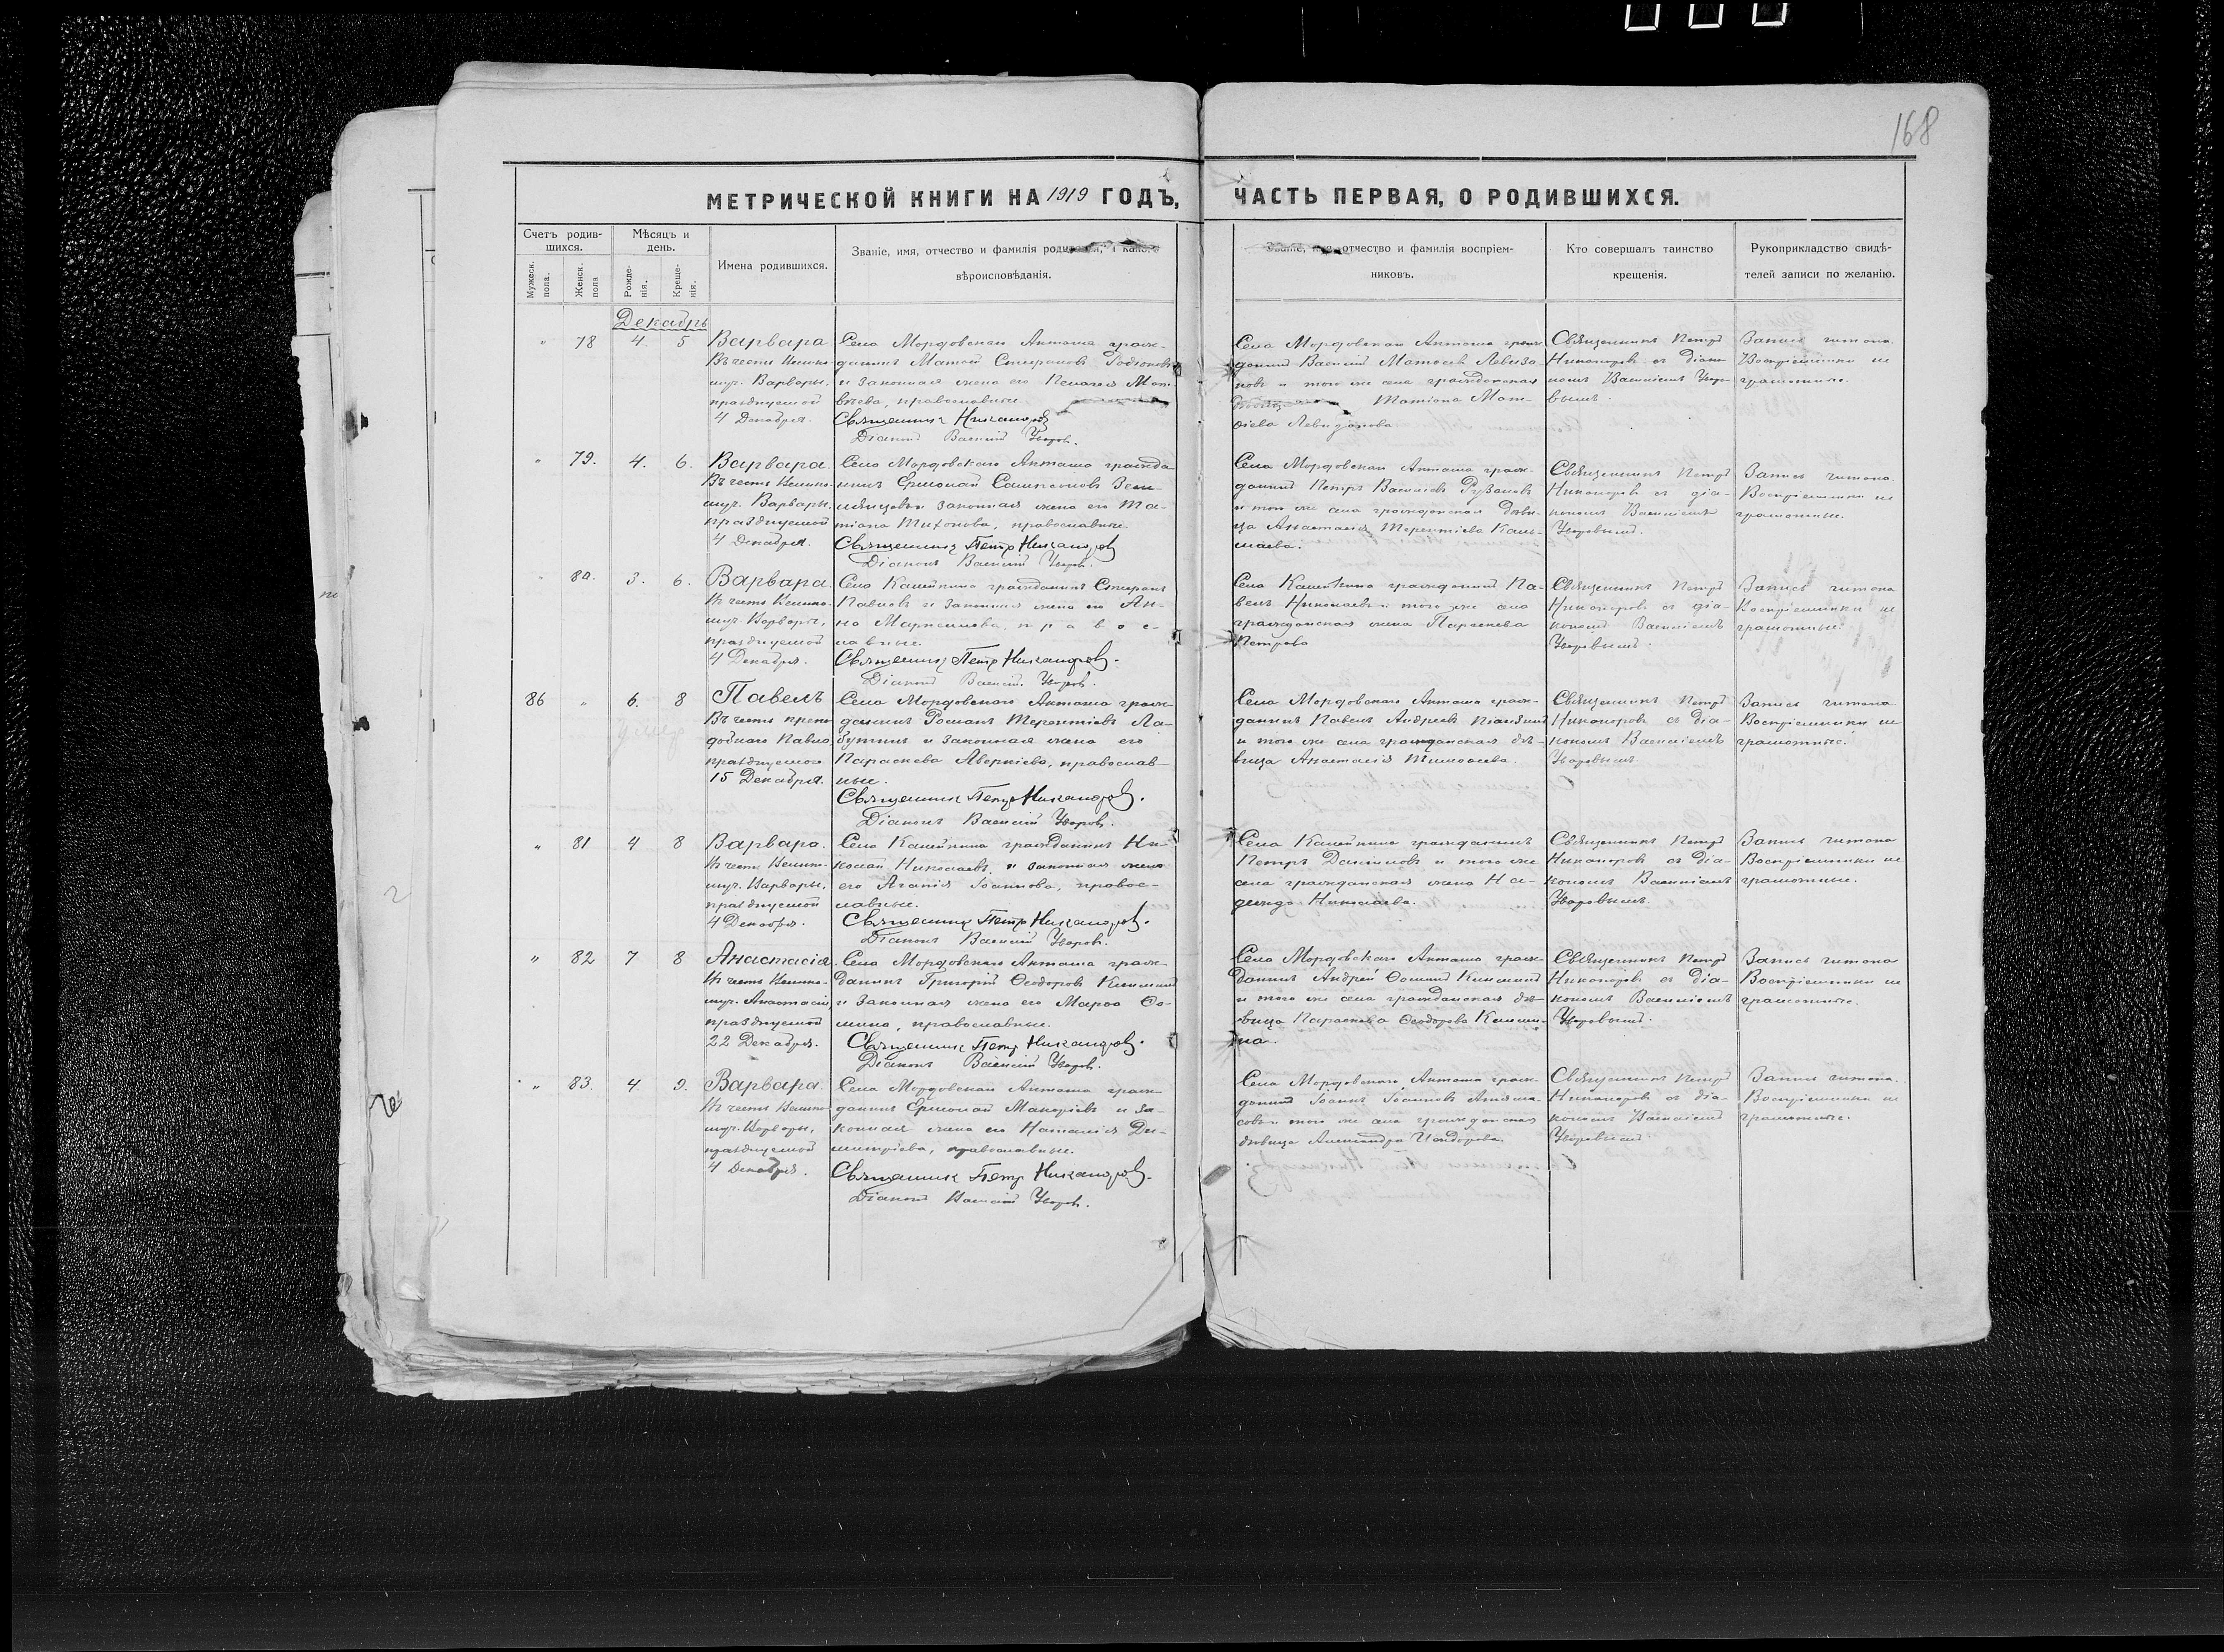 168
МЕТРИЧЕСКОЙ КНИГИ НА 1919 ГОДЪ, ЧАСТЬ ПЕРВАЯ, О РОДИВШИХСЯ.
Счетъ родив-
шихся.
Мѣсяцъ и
день.
Мужеск. пола.
Женск. пола
Рожде-
нія.
Креще-
нія.
Имена родившихся.
Званіе, имя, отчество и фамилія и какого
вѣроисповѣданія.
отчество и фамилія воспріем-
никовъ.
Кто совершалъ таинство
крещенія.
Рукоприкладство свидѣ-
телей записи по желанію.
Декабрь
" 78 4. 5
Варвара
Въ честь Велико
муч. Варвары,
празднуемой
4 Декабря.
Села Мордовскаго Акташа граж-
данинъ Матѳей Спиридоновъ
и законная жена его Пелагея Мат-
вѣева, православные.
Священникъ Никаноровъ
Діаконъ Василій Уваровъ.
Села Мордовскаго Акташа граж
данинъ Василій Матѳеевъ
новъ и того же села гражданская
Татіана Мат-
ѳіева
Священникъ Петръ
Никаноровъ съ діако
номъ Василіемъ Уваро-
вымъ.
Запись читана.
Воспріемники не
грамотные.
" 79. 4. 6.
Варвара.
Въ честь Велико-
муч. Варвары,
празднуемой
4 Декабря.
Села Мордовскаго Акташа гражда
нинъ Ермолай Сампсоновъ Зем
законная жена его Та-
тіана Тихонова, православные.
Священникъ Петръ Никаноровъ
Діаконъ Василій Уваровъ.
Села Мордовскаго Акташа граж-
данинъ Петръ Васильевъ
и того же села гражданская дѣви-
ца Анастасія Терентіева Каль-
маева.
Священникъ Петръ
Никаноровъ съ діа-
кономъ Василіемъ
Уваровымъ.
Запись читана.
Воспріемники не
грамотные.
" 80. 3. 6.
Варвара.
Въ честь Велико-
муч. Варвары,
празднуемой
4 Декабря.
Села Калейкина гражданинъ Спиридонъ
Павловъ и законная жена его Ан-
на Маркеллова, правос-
лавные.
Священникъ Петръ Никаноровъ.
Діаконъ Василій Уваровъ.
Села Калейкина гражданинъ Па-
велъ Николаевъ и того же села
гражданская жена Параскева
Петрова
Священникъ Петръ
Никаноровъ съ діа-
кономъ Василіемъ
Уваровымъ.
Запись читана
Воспріемники не
грамотные.
86 " 6. 8
Павелъ
Въ честь препо
добнаго Павла,
празднуемаго
15 Декабря.
Села Мордовскаго Акташа граж
данинъ Романъ Терентіевъ Ла-
бутинъ и законная жена его
Параскева Аверкіева, православ-
ные.
Священникъ Петръ Никаноровъ.
Діаконъ Василій Уваровъ.
Села Мордовскаго Акташа граж-
данинъ Павелъ Андреевъ
и того же села гражданская дѣ-
вица Анастасія Тимоѳеева.
Священникъ Петръ
Никаноровъ съ діа-
кономъ Василіемъ
Уваровымъ.
Запись читана
Воспріемники не
грамотные.
" 81 4 8
Варвара.
Въ честь Велико-
муч. Варвары,
празднуемой
4 Декабря.
Села Калейкина гражданинъ Ни-
колай Николаевъ и законная жена
его Агапія Іоаннова, правос-
лавные.
Священникъ Петръ Никаноровъ.
Діаконъ Василій Уваровъ.
Села Калейкина гражданинъ
Петръ Даніиловъ и того же
села гражданская жена На-
дежда Николаева.
Священникъ Петръ
Никаноровъ съ діа-
кономъ Василіемъ
Уваровымъ.
Запись читана
Воспріемники не
грамотные.
" 82 7 8
Анастасія.
Въ честь Велико-
муч. Анастасіи,
празднуемой
22 Декабря.
Села Мордовскаго Акташа граж-
данинъ Григорій Ѳеодоровъ
и законная жена его Марѳа Ѳо-
мина, православные.
Священникъ Петръ Никаноровъ.
Діаконъ Василій Уваровъ.
Села Мордовскаго Акташа граж-
данинъ Андрей Ѳоминъ
и того же села гражданская дѣ-
вица Параскева Ѳеодорова
на.
Священникъ Петръ
Никаноровъ съ діа-
кономъ Василіемъ
Уваровымъ.
Запись читана
Воспріемники не
грамотные.
" 83. 4 9.
Варвара.
Въ честь Велико
муч. Варвары,
празднуемой
4 Декабря.
Села Мордовскаго Акташа граж
данинъ Ермолай Макаріевъ и за-
конная жена его Наталія Ди-
митріева, православные.
Священникъ Петръ Никаноровъ.
Діаконъ Василій Уваровъ.
Села Мордовскаго Акташа граж-
данинъ Іоаннъ Іоанновъ
того же села гражданская
дѣвица Александра
Священникъ Петръ
Никаноровъ съ діа-
кономъ Василіемъ
Уваровымъ.
Запись читана.
Воспріемники не
грамотные.